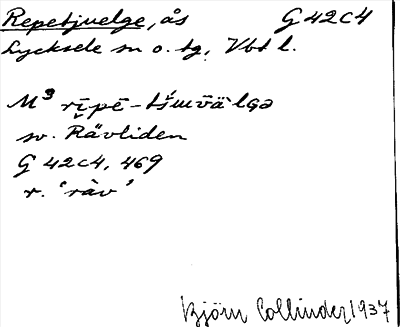 Repetjuelge, ås G 42c4
Lycksele sn o. tg. Vbt l.
M³ rīpē-
sv. Rävliden
G 42c4, 469
r. 'räv'
Björn Collinder 1937